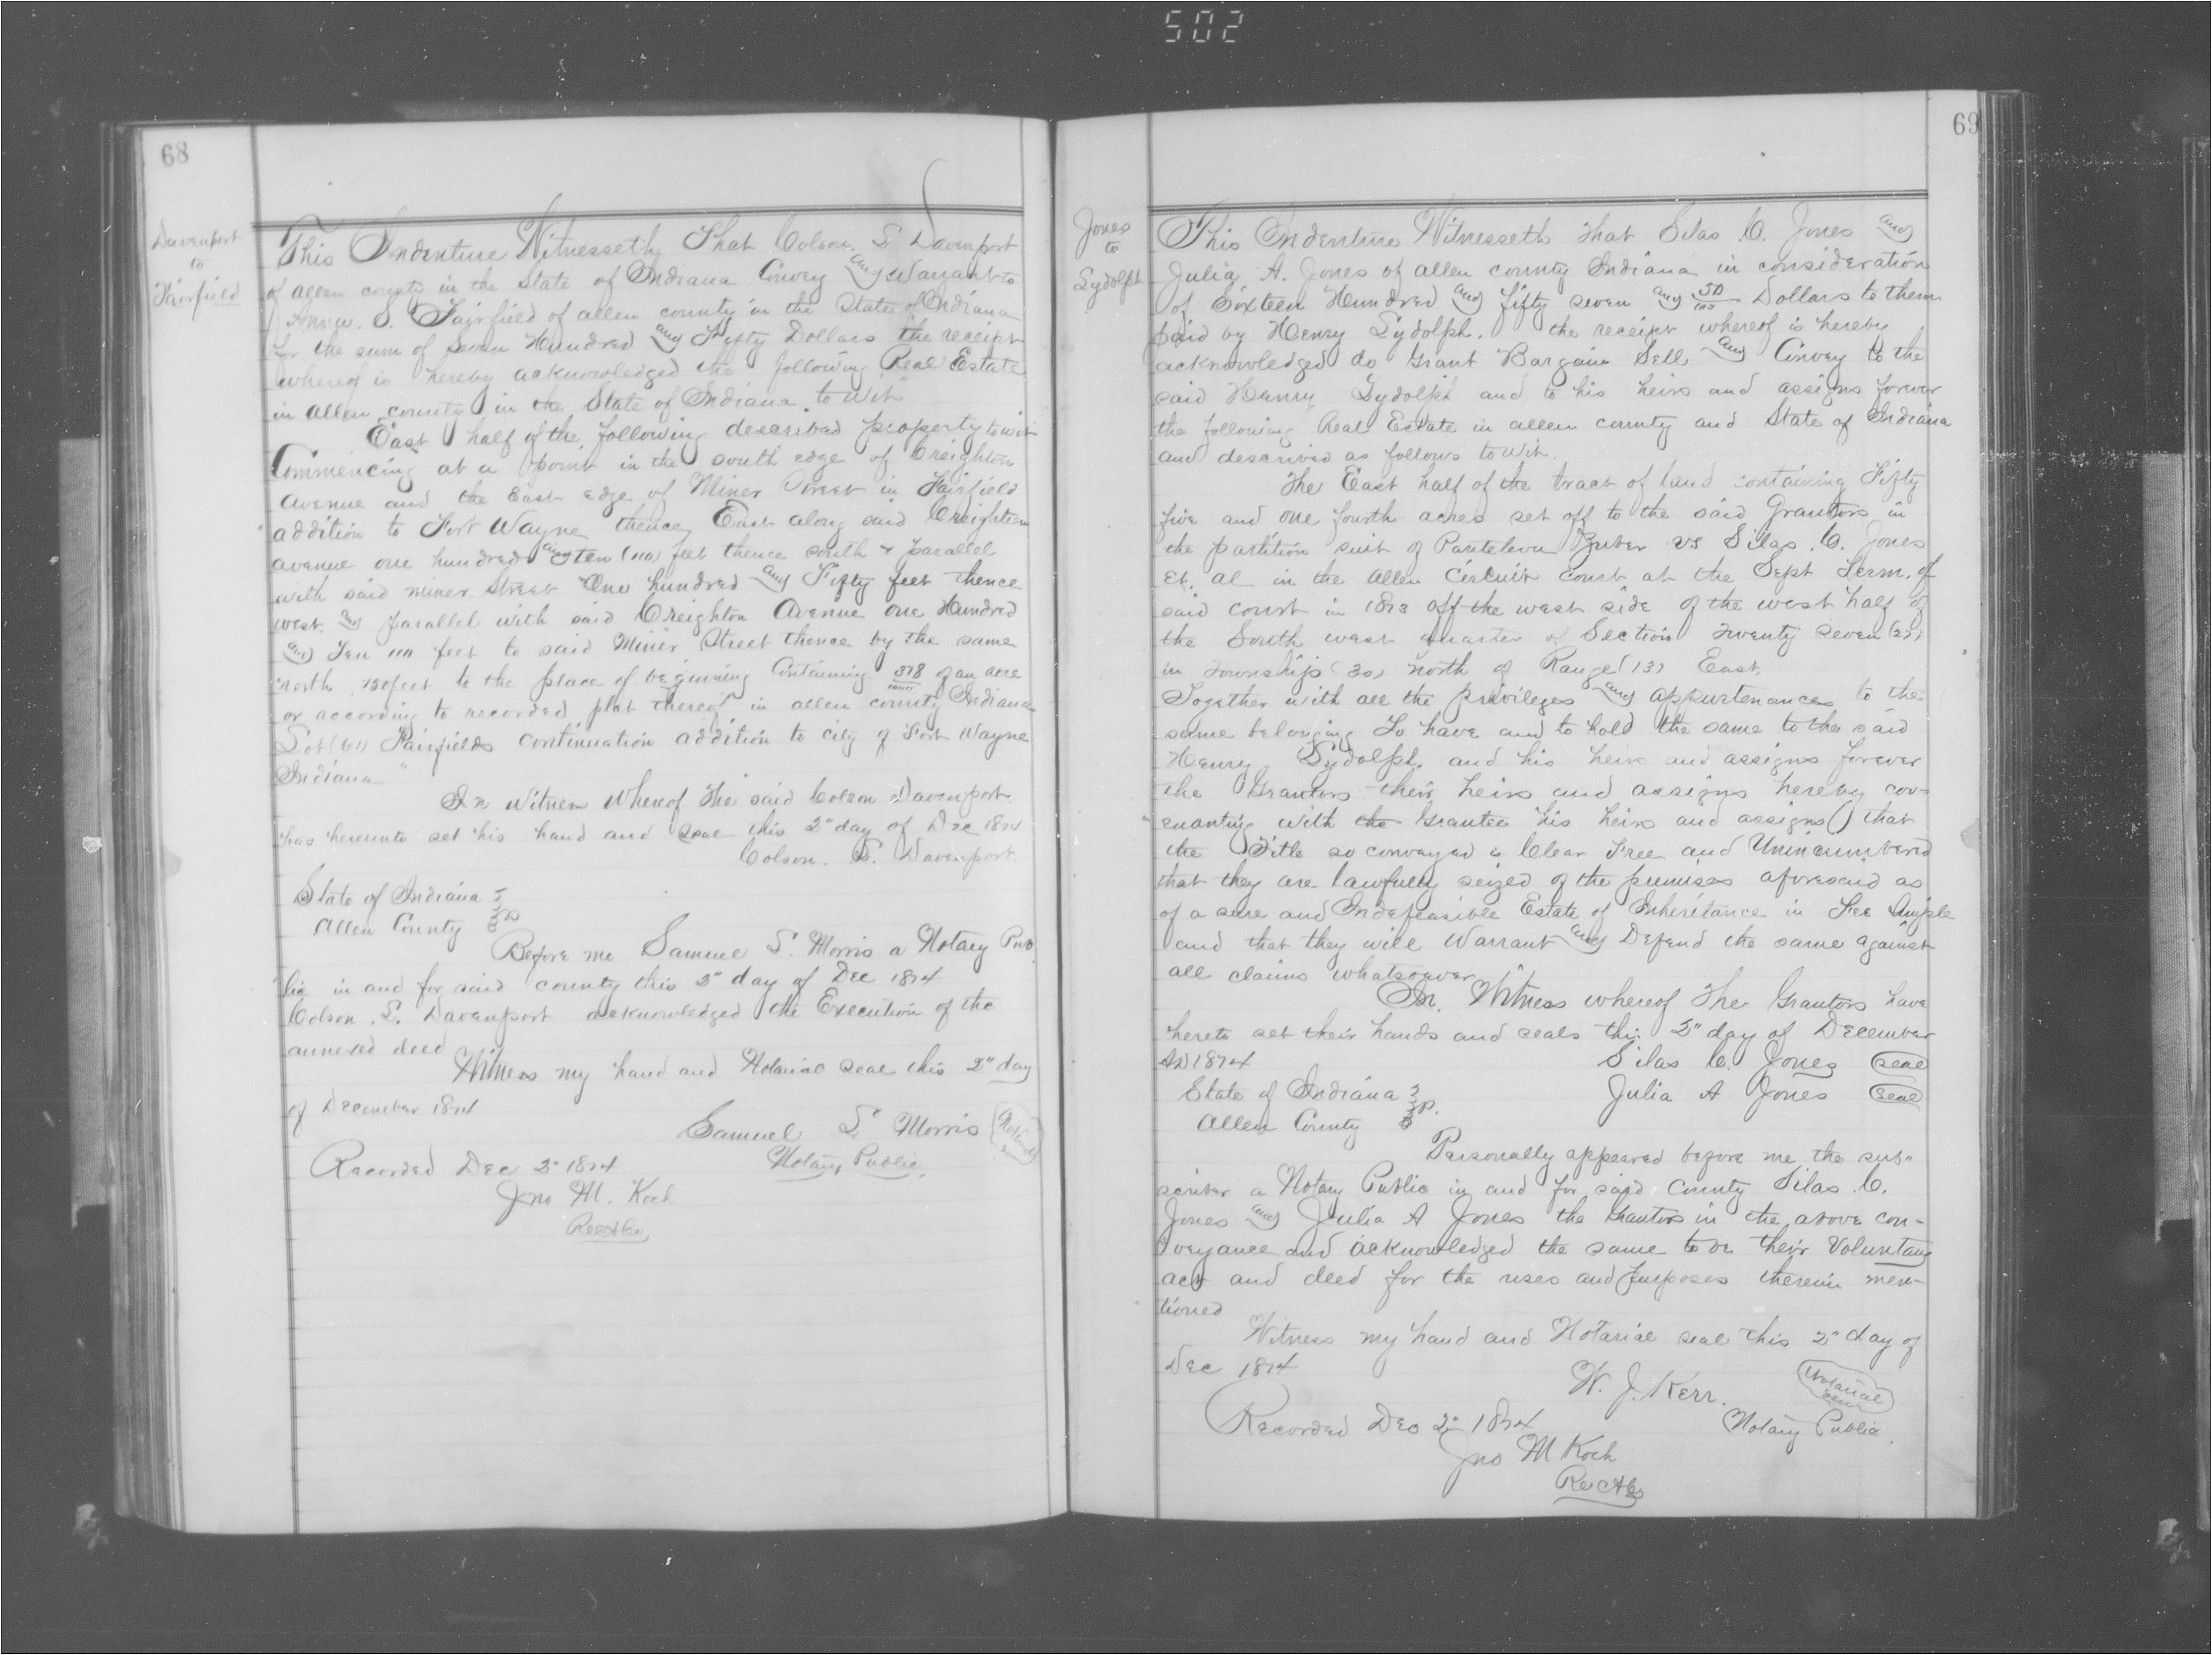 502
68
Davenport
to
Fairfield
This Indenture Witnesseth That Colson. S. Davenport
of Allen county in the State of Indiana Convey and Warrant to
S. Fairfield of Allen county in the State of Indiana
for the sum of Seven Hundred and Fifty Dollars the receipt
whereof is hereby acknowledged the following Real Estate
in Allen county in the State of Indiana to Wit"
East half of the following described property to wit
Commencing at a point in the south edge of Creighton
Avenue and the East edge of Miner Street in Fairfield
addition to Fort Wayne thence East along said Creighton
avenue one hundred and ten (110) feet thence south & parallel
with said miner Street One hundred and Fifty feet thence
west and parallel with said Creighton Avenue one Hundred
and Ten 110 feet to said Miner Street thence by the same
north 150 feet to the place of beginning Containing 378 of an acre
or according to recorded plat thereof in allen county Indiana
Lot (61) Fairfields continuation addition to city of Fort Wayne
Indiana "
In Witness Whereof The said Colson Davenport
has hereunto set his hand and Seal this 2" day of Dec 1874
Colson. S. Davenport.
State of Indiana
Allen County
Before me Samuel L. Morris a Notary Pub
lic in and for said county this 2" day of Dec 1874
Colson S. Davenport acknowledged the Execution of the
annexed deed
Witness my hand and Notarial seal this 2" day
of December 1874
Samuel L Morris
Notarial
Seal
Notary Public.
Recorded Dec 2" 1874
Jno M. Koch
69
Jones
to
Lydolph
This Indenture Witnesseth that Silas C. Jones and
Julia A. Jones of allen county Indiana in consideration
of Sixteen Hundred and fifty seven and 50/100 Dollars to them
paid by Henry Lydolph. the receipt whereof is hereby
acknowledged do Grant Bargain Sell and Convey to the
said Henry Lydolph and to his heirs and assigns forever
the following Real Estate in allen county and State of Indiana
and described as follows to Wit.
The East half of the tract of land containing Fifty
five and one fourth acres set off to the said Grantors in
the partition suit of Panteleon Huber vs Silas C. Jones
Et. al in the Allen Circuit Court at the Sept Term. of
said court in 1873 off the west side of the west half of
the South west quarter of Section Twenty seven (27)
in Township (30) north of Range (13) East.
Together with all the privileges and appurtenances to the
same belonging To have and to hold the same to the said
Henry Lydolph. and his heirs and assigns forever
the Grantors their heirs and assigns hereby cov-
enanting with the Grantee his heirs and assigns that
the Title so conveyed is Clear Free and Unincumbered
that they are lawfully seized of the premises aforesaid as
of a sure and Indefeasible Estate of Inheritance in Fee Simple
and that they will Warrant and Defend the same against
all claims whatsoever
In Witness whereof The Grantors have
hereto set their hands and seals this 2" day of December
AD 1874
Silas C. Jones Seal
Julia A Jones Seal
State of Indiana
Allen County
Personally appeared before me the sub"
scriber a Notary Public in and for said County Silas C.
Jones and Julia A Jones the Grantors in the above con-
veyance and acknowledged the same to be their Voluntary
act and deed for the uses and purposes therein men-
tioned
Witness my hand and Notarial seal this 2" day of
Dec 1874
W. J. Kerr.
Notarial
Seal
Notary Public.
Recorded Dec 2" 1874
Jno M Koch